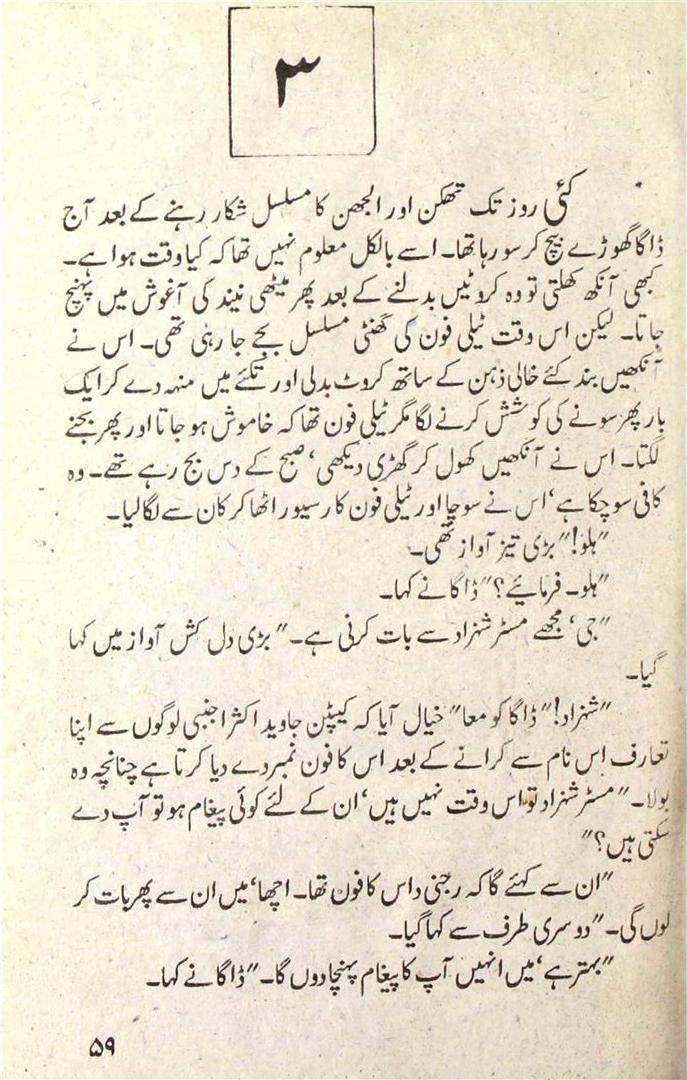 ۳
کئی روز تک تھکن اور الجھن کا مسلسل شکار رہنے کے بعد آج
ڈاگا گھوڑے بیچ کر سو رہا تھا۔ اسے بالکل معلوم نہیں تھا کہ کیا وقت ہوا ہے۔
کبھی آنکھ کھلتی تو وہ کروٹیں بدلنے کے بعد پھر میٹھی نیند کی آغوش میں پہنچ
جاتا۔ لیکن اس وقت ٹیلی فون کی گھنٹی مسلسل بجے جا رہی تھی۔ اس نے
آنکھیں بند کئے خالی ذہن کے ساتھ کروٹ بدلی اور تکئے میں منہ دے کر ایک
بار پھر سونے کی کوشش کرنے لگا مگر ٹیلی فون تھا کہ خاموش ہو جاتا اور پھر بجنے
لگتا۔ اس نے آنکھیں کھول کر گھڑی دیکھی، صبح کے دس بج رہے تھے۔ وہ
کافی سو چکا ہے، اس نے سوچا اور ٹیلی فون کا رسیور اٹھا کر کان سے لگا لیا۔
"ہلو!" بڑی تیز آواز تھی۔
"ہلو۔ فرمائیے؟" ڈاگا نے کہا۔
"جی، مجھے مسٹر شہزاد سے بات کرنی ہے۔" بڑی دل کش آواز میں کہا
گیا۔
"شہزاد!" ڈاگا کو معا" خیال آیا کہ کیپٹن جاوید اکثر اجنبی لوگوں سے اپنا
تعارف اس نام سے کرانے کے بعد اس کا فون نمبر دے دیا کرتا ہے چنانچہ وہ
بولا۔ "مسٹر شہزاد تو اس وقت نہیں ہیں، ان کے لئے کوئی پیغام ہو تو آپ دے
سکتی ہیں؟"
"ان سے کہئے گا کہ رجنی داس کا فون تھا۔ اچھا، میں ان سے پھر بات کر
لوں گی۔" دوسری طرف سے کہا گیا۔
"بہتر ہے، میں انہیں آپ کا پیغام پہنچا دوں گا۔" ڈاگا نے کہا۔
۵۹